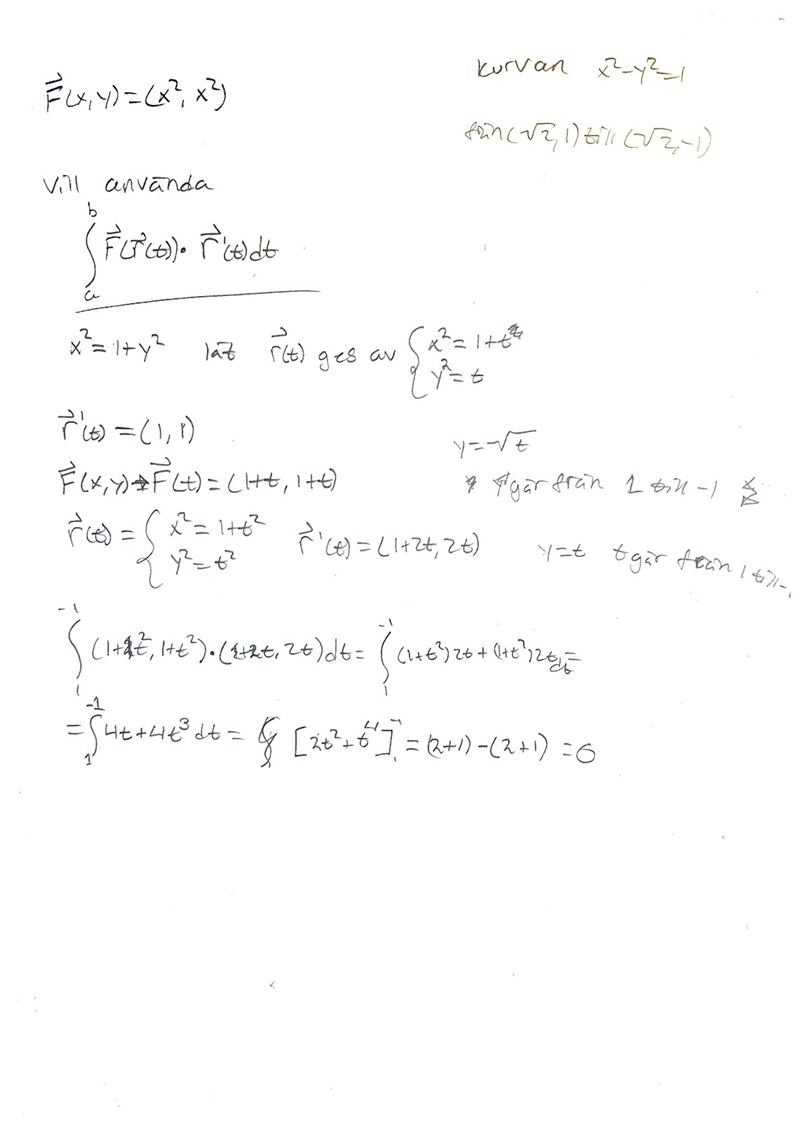 F⃗(x,y)=(x², x²)
kurvan x²-y²=1
från (√2,1) till (√2,-1)
Vill använda
∫ₐᵇ F⃗(r⃗(t))· r⃗'(t)dt
x²=1+y² låt r⃗(t) ges av { x²=1+t
y²=t
r⃗'(t) = (1, 1)
y=-√t
F⃗(x,y)→F⃗(t)=(1+t, 1+t)
går från 1 till -1
r⃗(t) = { x²=1+t²
y²=t²
r⃗'(t)=(1+2t, 2t)
y=t t går från 1 till -
∫₁⁻¹ (1+t², 1+t²)·(2t, 2t)dt = ∫₁⁻¹ (1+t²)2t + (1+t²)2t dt=
=∫₁⁻¹ 4t+4t³ dt = [2t²+t⁴]₁⁻¹ = (2+1)-(2+1) = 0